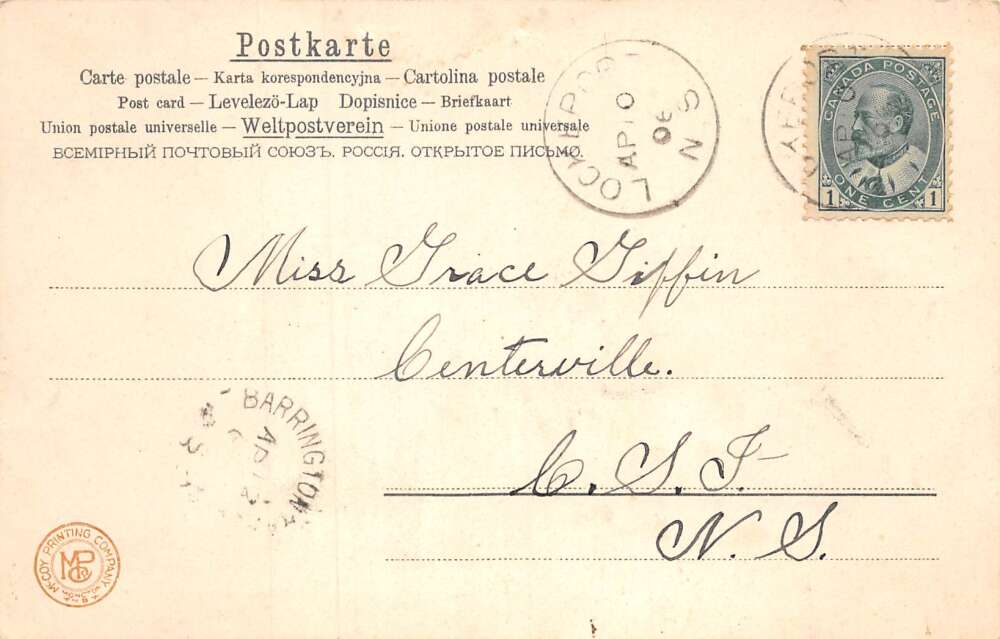 Postkarte
Carte postale — Karta korespondencyjna — Cartolina postale
Post card — Levelezö-Lap Dopisnice — Briefkaart
Union postale universelle — Weltpostverein — Unione postale universale
ВСЕМІРНЫЙ ПОЧТОВЫЙ СОЮЗЪ. РОССІЯ. ОТКРЫТОЕ ПИСЬМО.
LOCKEPORT N.S
AP 10
06
CANADA POSTAGE
1 ONE CENT 1
AP
Miss Grace Giffin
Centerville.
C. S. I
N. S.
BARRINGTON
AP 12
McCOY PRINTING COMPANY
MPCo